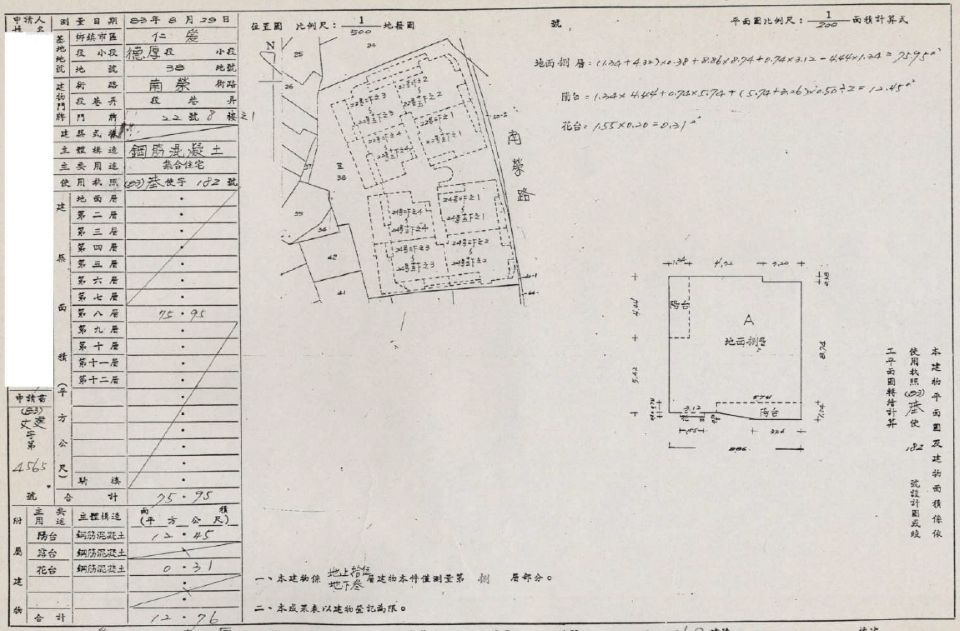 申請人
姓名
測量日期 83年8月29日
基地地號
鄉鎮市區 仁愛
段 小段 德厚段 小段
地號 38 地號
建物門牌
街路 南榮 街路
段巷弄 段 巷 弄
門牌 22 號 8 樓之1
建築式樣
主體構造 鋼筋混凝土
主要用途 集合住宅
使用執照 (83)基使字 182 號
建築面積(平方公尺)
地面層
第二層
第三層
第四層
第五層
第六層
第七層
第八層 75.95
第九層
第十層
第十一層
第十二層
騎樓
合計 75.95
申請書
(83)
字第
4565
號
附屬建物
主要用途 主體構造 面積(平方公尺)
陽台 鋼筋混凝土 12.45
露台 鋼筋混凝土
花台 鋼筋混凝土 0.31
合計 12.76
位置圖 比例尺:1/500 地籍圖
號
平面圖比例尺:1/200 面積計算式
N
南榮路
38
42
41
地面捌層=(1.24+4.32)×0.38+8.86×8.74+0.74×3.12-4.44×1.24=75.95㎡
陽台=1.24×4.44+0.74×5.74+(5.74+2.26)×0.50÷2=12.45㎡
花台=1.55×0.20=0.31㎡
陽台
A
地面捌層
陽台
3.12
8.74
8.86
本建物平面圖及建物面積係依
使用執照(83)基使 182 號設計圖或竣
工平面圖轉繪計算
一、本建物係 地上拾伍 地下叁 層建物本件僅測量第 捌 層部分。
二、本成果表以建物登記為限。